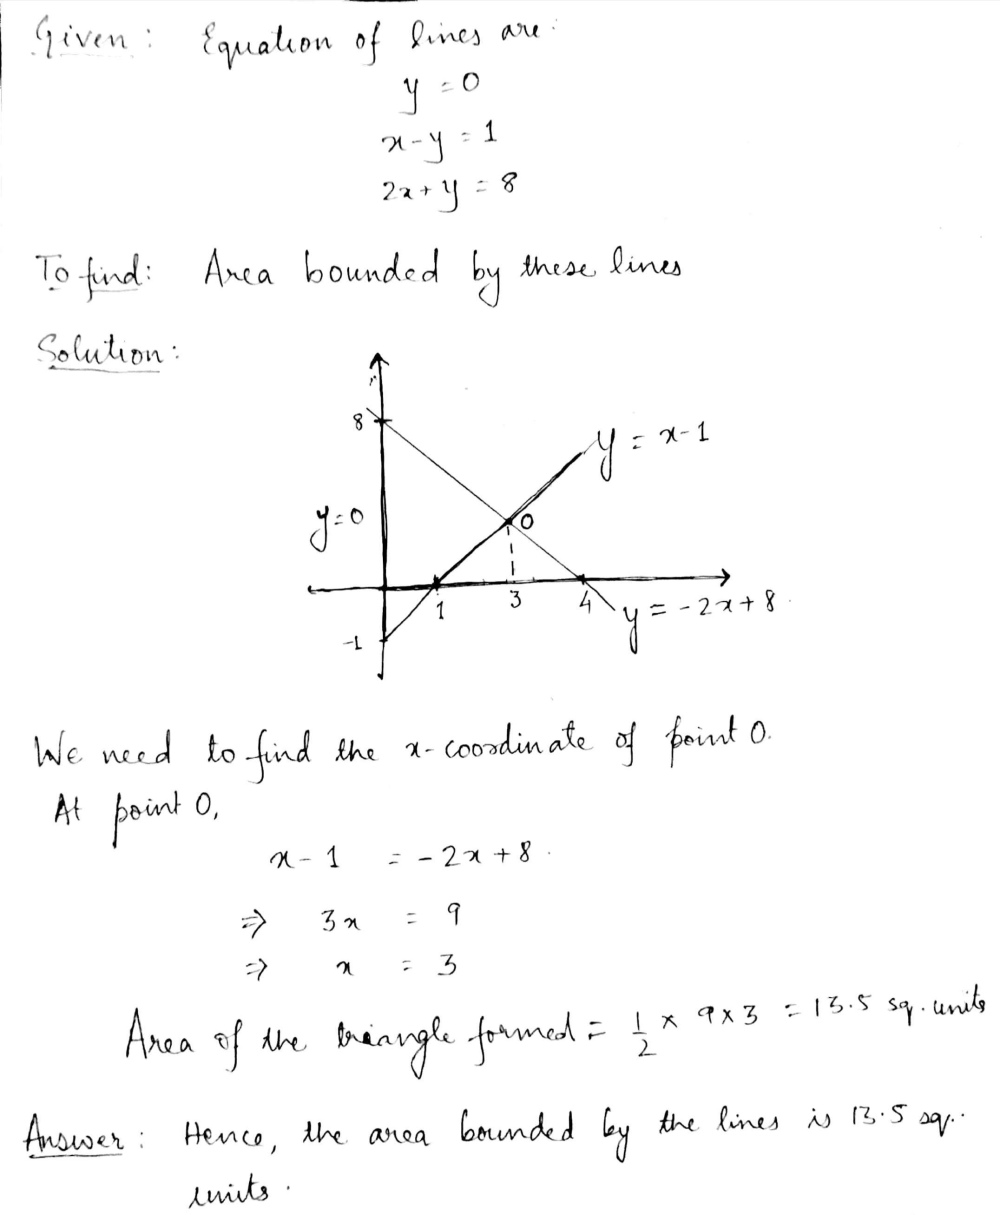 Given : Equation of lines are :
y = 0
x - y = 1
2x + y = 8
To find : Area bounded by these lines
Solution :
8
y = x - 1
y = 0
O
1 3 4
y = -2x + 8
-1
We need to find the x-coordinate of point O.
At point O,
x - 1 = -2x + 8
⇒ 3x = 9
⇒ x = 3
Area of the triangle formed = 1/2 × 9 × 3 = 13.5 sq. units
Answer : Hence, the area bounded by the lines is 13.5 sq.
units.